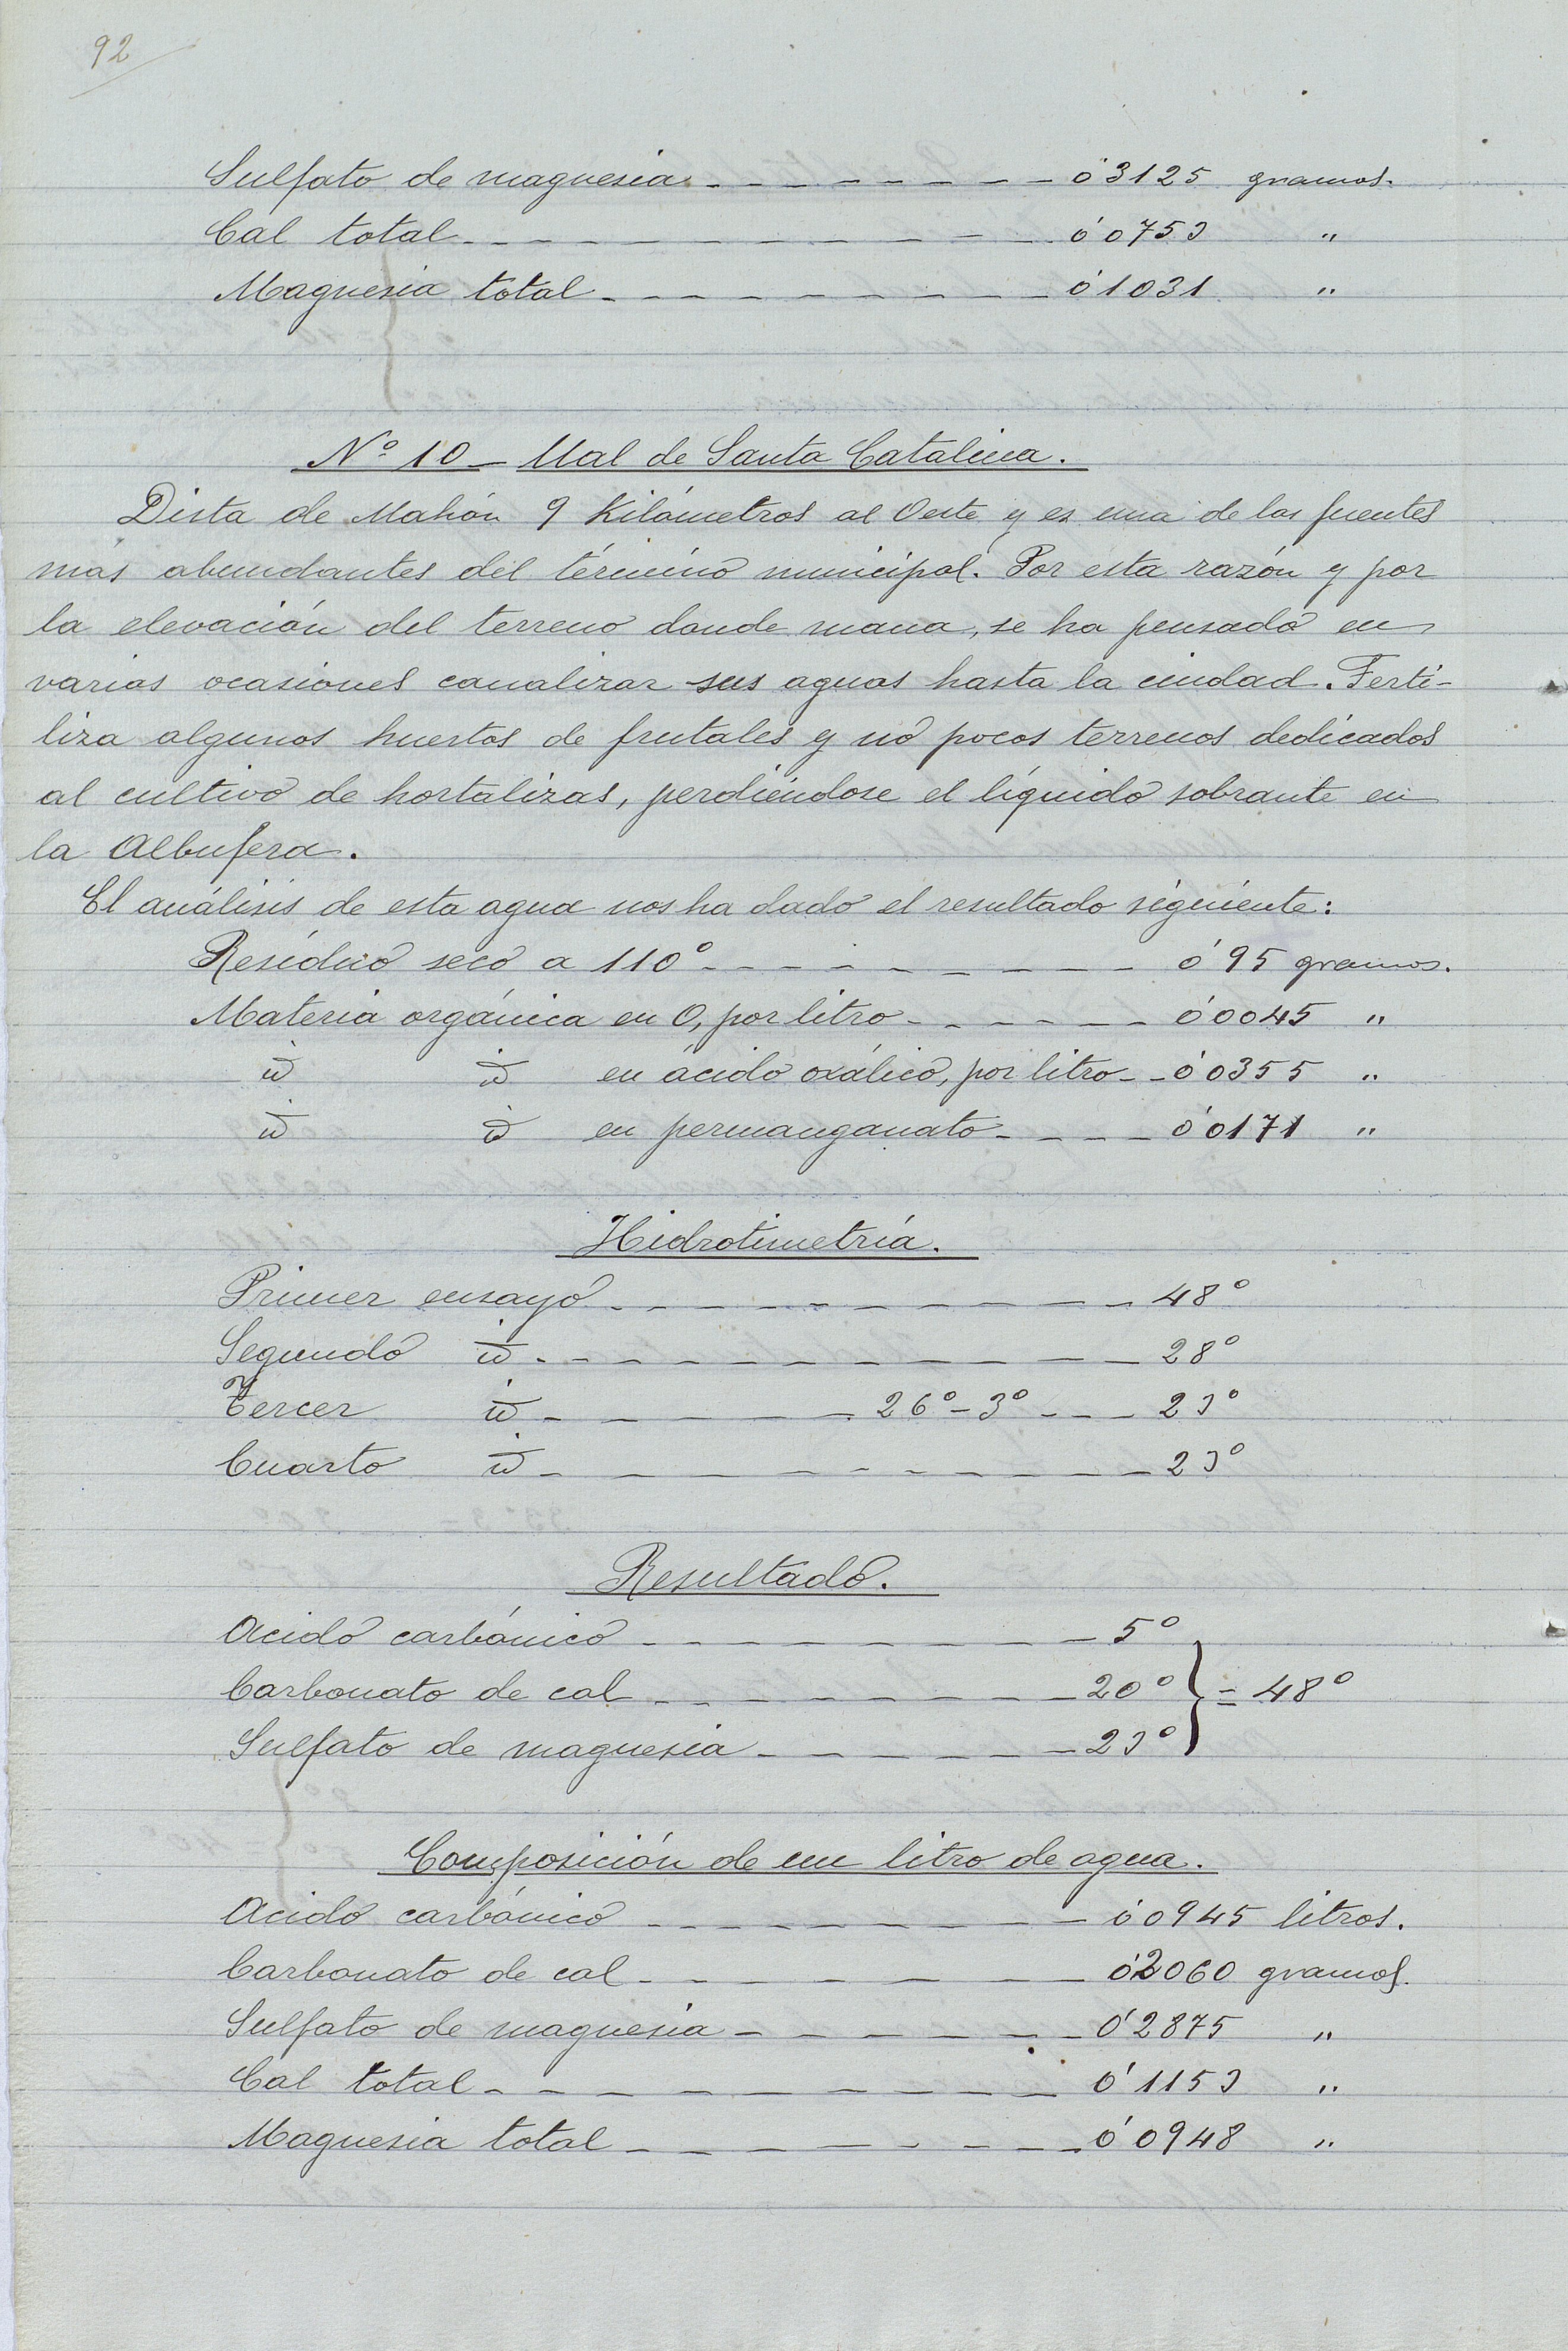 92
Sulfato de magnesia - - - - - - - 0'3125 gramos.
Cal total - - - - - - - - - - - 0'0753 "
Magnesia total - - - - - - - - - 0'1031 "
Nº 10 - Ual de Santa Catalina.
Dista de Mahón 9 Kilómetros al Oeste y es una de las fuentes
más abundantes del término municipal. Por esta razón y por
la elevación del terreno donde mana, se ha pensado en
varias ocasiones canalizar sus aguas hasta la ciudad. Ferti-
liza algunos huertos de frutales y no pocos terrenos dedicados
al cultivo de hortalizas, perdiéndose el líquido sobrante en
la Albufera.
El análisis de esta agua nos ha dado el resultado siguiente:
Residuo seco a 110º - - - - - - - - - 0'95 gramos.
Materia orgánica en O, por litro - - - - - 0'0045 "
id id en ácido oxálico, por litro - - 0'0355 "
id id en permanganato - - - - 0'0171 "
Hidrotimetría.
Primer ensayo - - - - - - - - - - 48º
Segundo id - - - - - - - - - - - 28º
Tercer id - - - - - - 26º-3º - - - 23º
Cuarto id - - - - - - - - - - - 23º
Resultado.
Acido carbónico - - - - - - - - 5º
Carbonato de cal - - - - - - - - 20º } = 48º
Sulfato de magnesia - - - - - - 23º
Composición de un litro de agua.
Acido carbónico - - - - - - - - 0'0945 litros.
Carbonato de cal - - - - - - - 0'2060 gramos.
Sulfato de magnesia - - - - - - - 0'2875 "
Cal total - - - - - - - - - - 0'1153 "
Magnesia total - - - - - - - - 0'0948 "